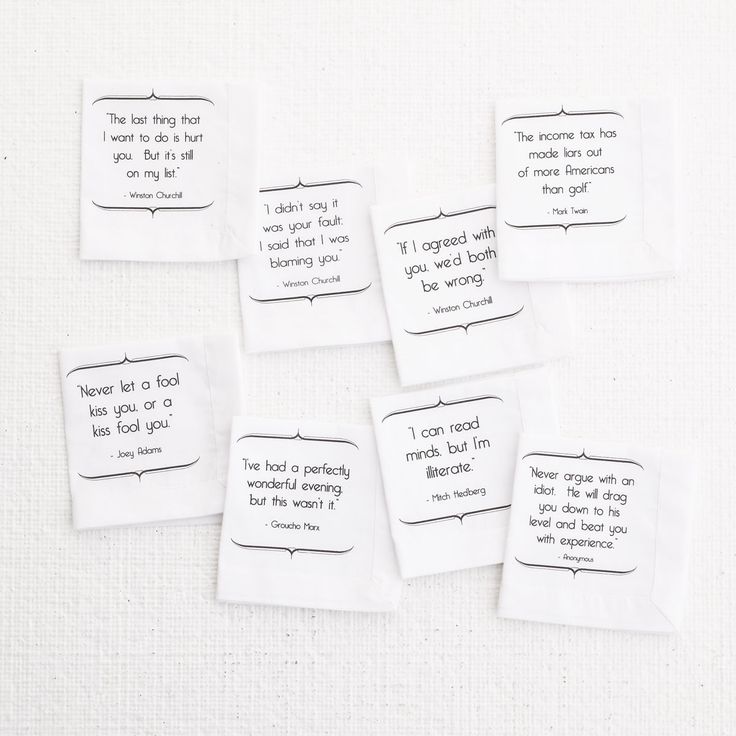 "The last thing that
I want to do is hurt
you. But it's still
on my list."
- Winston Churchill
"I didn't say it
was your fault;
I said that I was
blaming you."
- Winston Churchill
"If I agreed with
you, we'd both
be wrong."
- Winston Churchill
"The income tax has
made liars out
of more Americans
than golf."
- Mark Twain
"Never let a fool
kiss you, or a
kiss fool you."
- Joey Adams
"I've had a perfectly
wonderful evening,
but this wasn't it."
- Groucho Marx
"I can read
minds, but I'm
illiterate."
- Mitch Hedberg
"Never argue with an
idiot. He will drag
you down to his
level and beat you
with experience."
- Anonymous